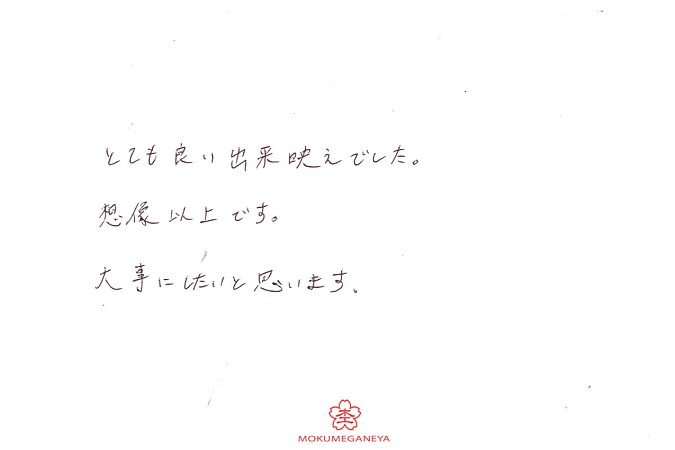 とても良い出来映えでした。
想像以上です。
大事にしたいと思います。
MOKUMEGANEYA